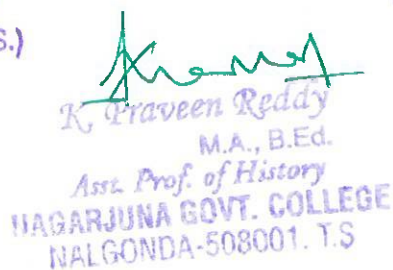 S.)
K. Praveen Reddy
M.A., B.Ed.
Asst. Prof. of History
NAGARJUNA GOVT. COLLEGE
NALGONDA-508001. T.S